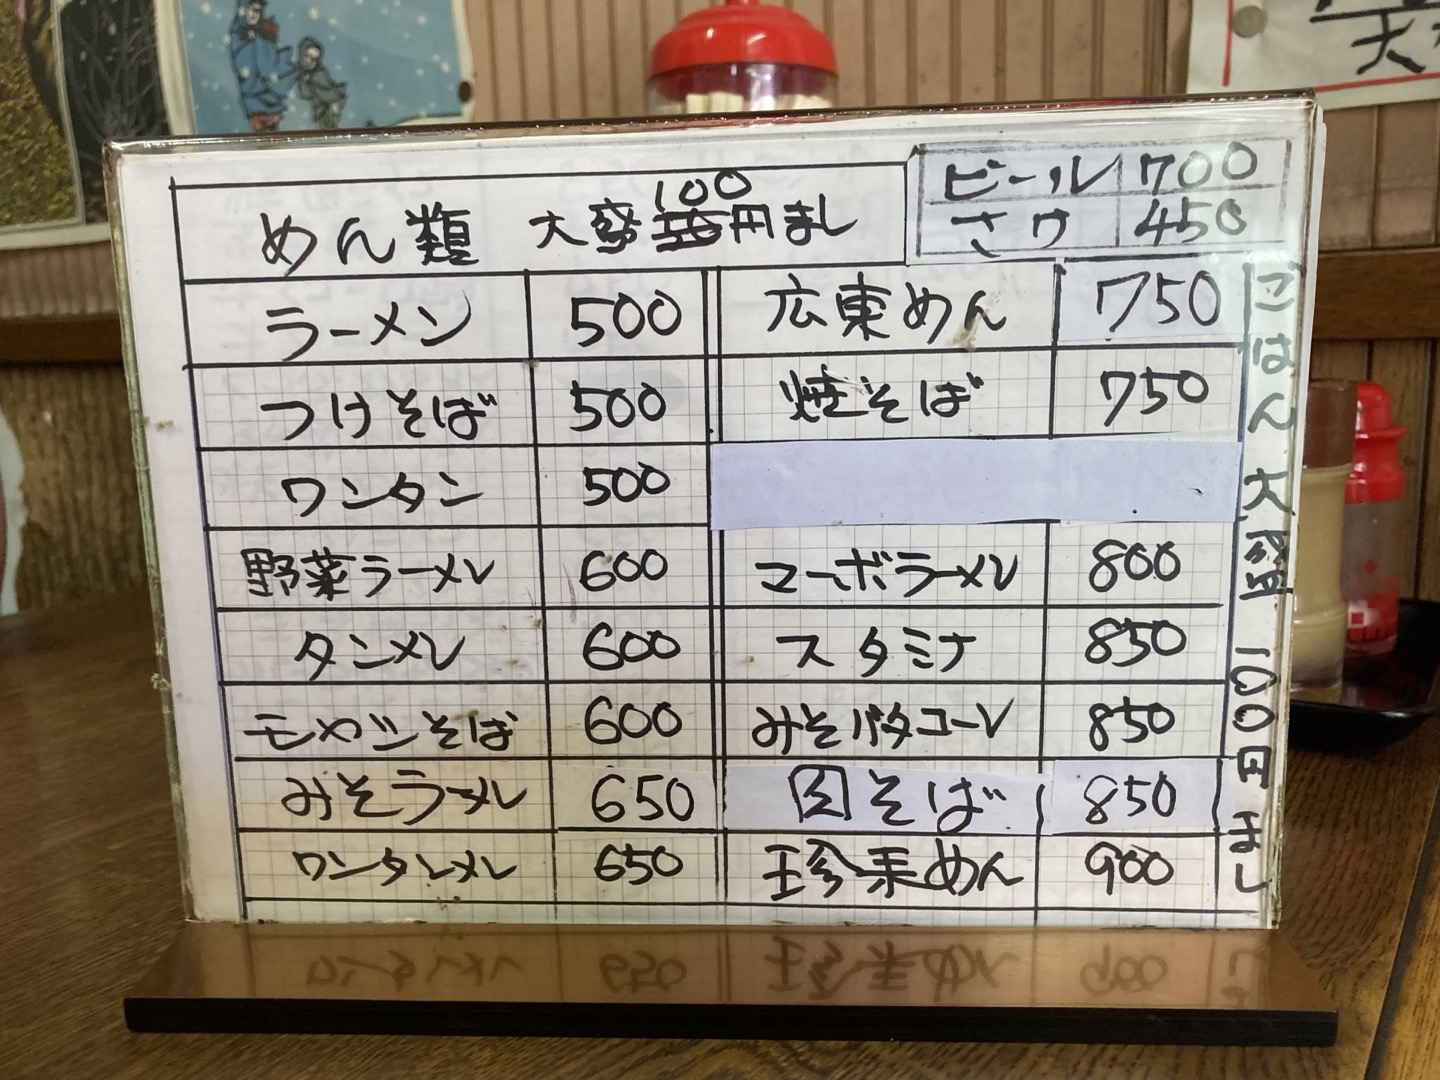 めん類 大盛100円まし
ビール 700
さけ 450
ラーメン 500
つけそば 500
ワンタン 500
野菜ラーメン 600
タンメン 600
モヤシそば 600
みそラーメン 650
ワンタンメン 650
広東めん 750
焼そば 750
マーボラーメン 800
スタミナ 850
みそバタコーン 850
肉そば 850
珍来めん 900
ごはん大盛100円まし